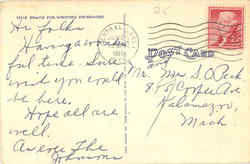 THIS SPACE FOR WRITING MESSAGES
POST CARD
Hi folks
Having a wonder
ful time. Sure
wish you could
be here.
Hope all are
well.
The
Johnsons
Mr. and Mrs S O Peck
Cooper Ave
Kalamazoo,
Mich.